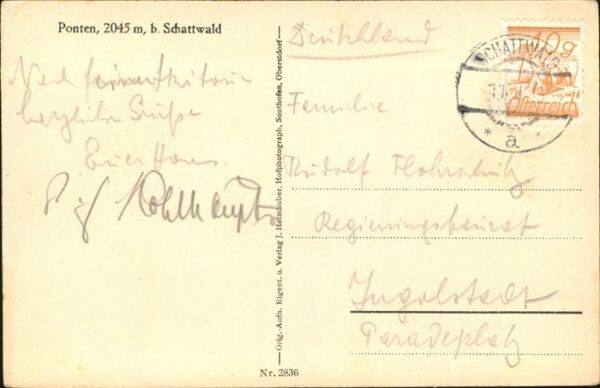 Ponten, 2045 m, b. Schattwald
herzliche Grüße
Euer Hans.
Orig.-Aufn. Eigent. u. Verlag J. Heimhuber, Hofphotograph, Sonthofen, Oberstdorf
Nr. 2836
Deutschland
40g
Österreich
SCHATTWALD
* a *
Familie
Rudolf
Regierungsbaurat
Ingolstadt
Paradeplatz